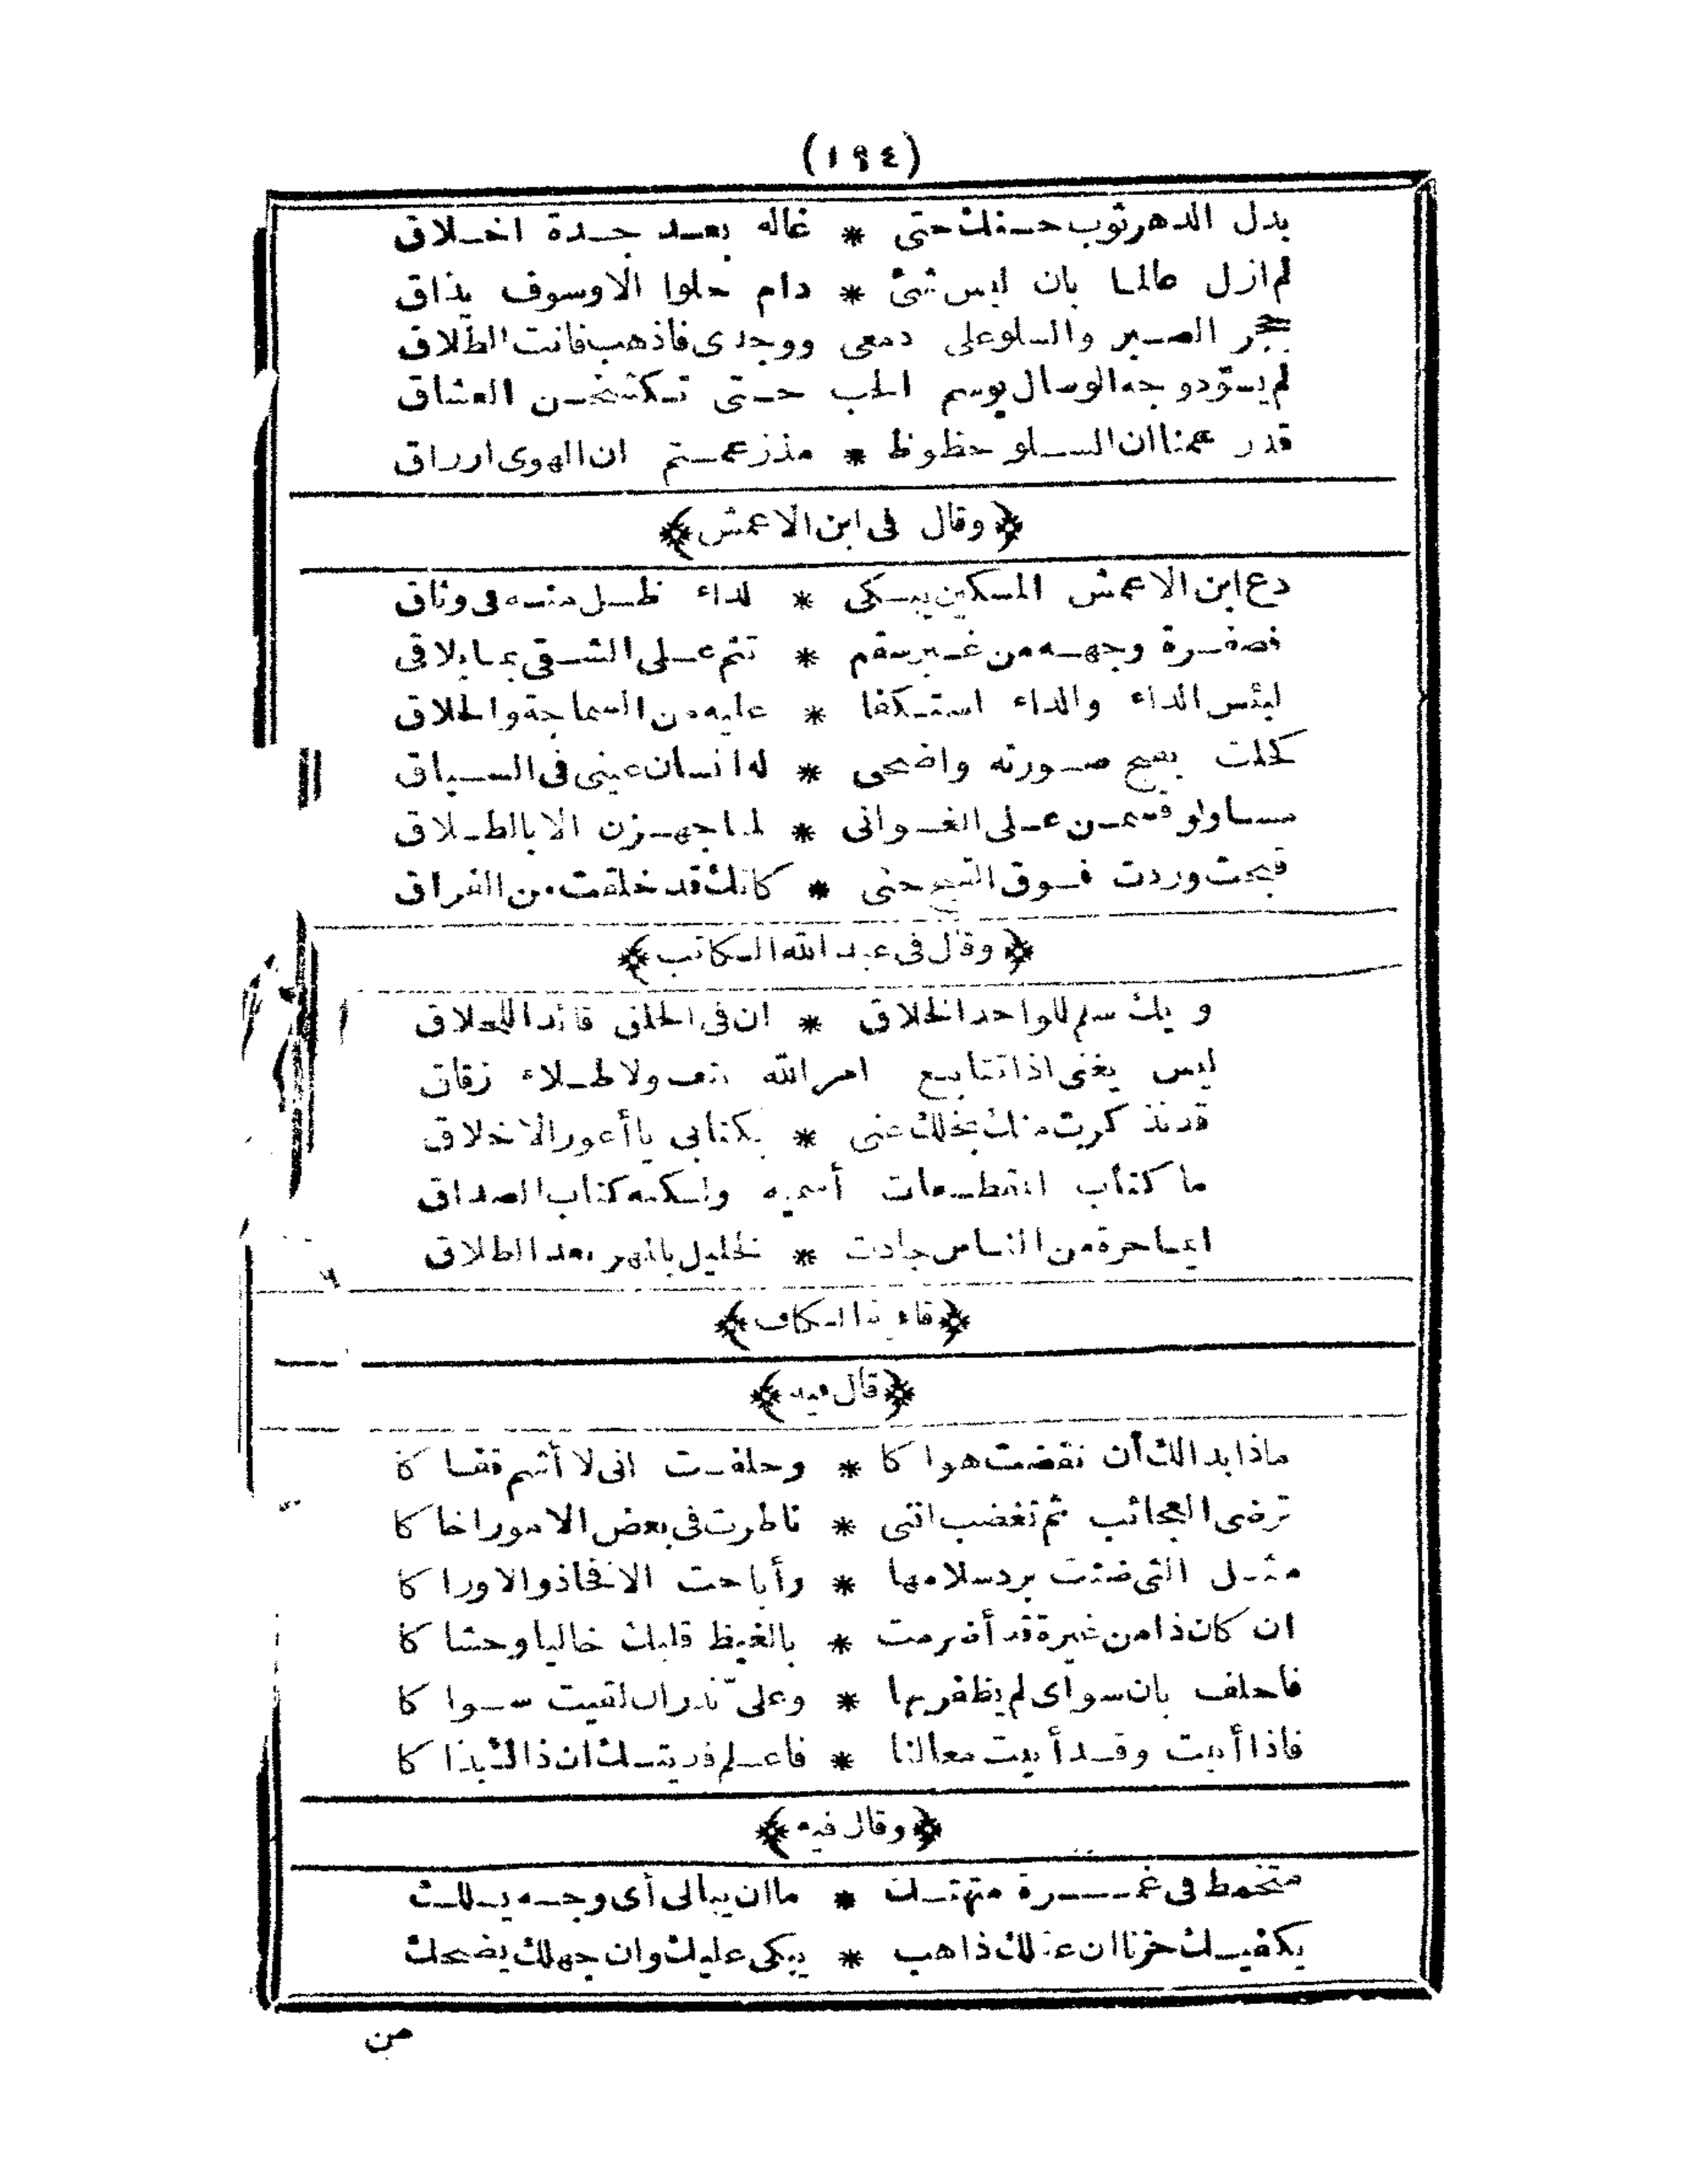 (١٩٤)
بدل الدهر ثوب حسنك حتى * غاله بعد جدة اخلاق
لم ازل عالما بان ليس شئ * دام حلوا الا وسوف يذاق
الصبر والسلو على دمعى ووجدى فاذهب فانت الطلاق
لم يسوّد وجه الوصال بوسم الحب حتى تكشخن العشاق
قد زعمنا ان السلو حظوظ * مذ زعمتم ان الهوى ارزاق
﴿وقال فى ابن الاعمش﴾
دع ابن الاعمش المسكين يبكى * لداء ظل منه فى وثاق
فصفرة وجهه من غير سقم * تنم على الشقى بما يلاقى
لبئس الداء والداء استكفا * عليه من السماجة والحلاق
كحلت بقبح صورته واضحى * له انسان عينى فى السياق
مساو لو قسمن على الغوانى * لما جهزن الا بالطلاق
قبحت وزدت فوق القبح حتى * كانك قد خلقت من الفراق
﴿وقال فى عبد الله الكاتب﴾
ويك سلم للواحد الخلاق * ان فى الحلق قائد
ليس يغنى اذا تتابع امر الله نتف ولا طلاء زقاق
قد تذكرت منك بخلك عنى * بكتابى يا أعور الاخلاق
ما كتاب المقطعات أسميه ولكنه كتاب الصداق
ايما حرة من الناس جادت * لخليل بالمهر بعد الطلاق
﴿قافية الكاف﴾
﴿قال فيه﴾
ماذا بدا لك أن نقضت هواكا * وحلفت انى لا أشم قفاكا
ترضى العجائب ثم تغضب اننى * ناظرت فى بعض الامور اخاكا
مثل التى ضنت برد سلامها * وأباحت الافخاذ والاوراكا
ان كان ذا من غيرة قد أضرمت * بالغيظ قلبك خاليا وحشاكا
فاحلف بان سواى لم يظفر بها * وعلىّ نذر ان لقيت سواكا
فاذا أبيت وقد أبيت معالنا * فاعلم فديتك ان ذاك بذاكا
﴿وقال فيه﴾
متخمط فى غمرة متهتك * ما ان يبالى أى وجه يسلك
يكفيك حزنا ان عقلك ذاهب * يبكى عليك وان جهلك يضحك
من